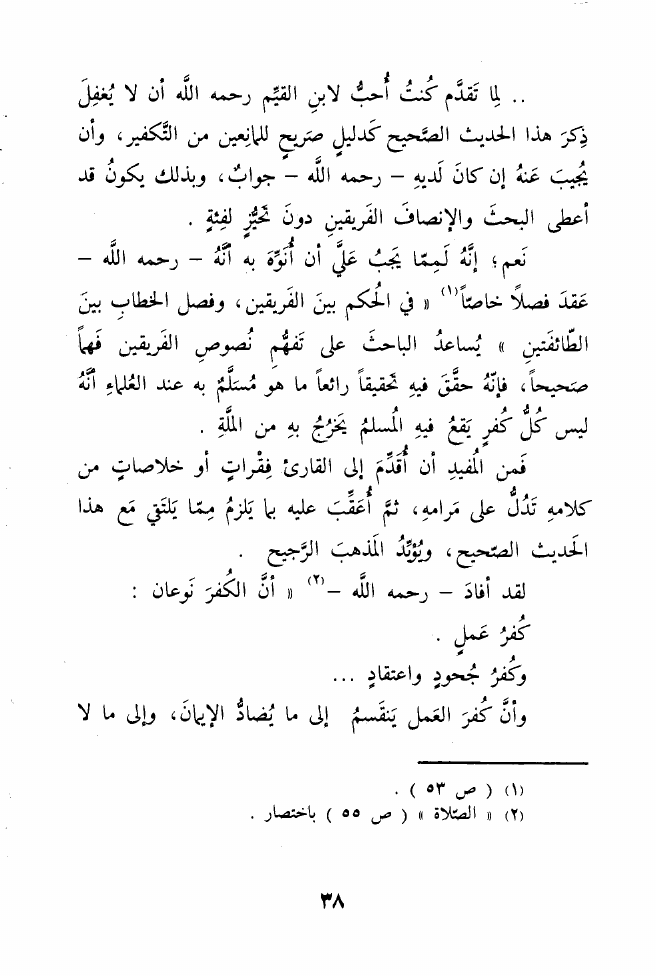 .. لِمَا تَقدَّم كُنتُ أُحبُّ لابنِ القيِّم رحمه اللَّه أن لا يُغفِلَ
ذِكرَ هذا الحديث الصَّحيح كَدليلٍ صَريحٍ للمانِعين من التَّكفير، وأن
يُجيبَ عَنهُ إن كانَ لَديهِ – رحمه اللَّه – جوابٌ، وبذلك يكونُ قد
أعطى البحثَ والإنصافَ الفَريقينِ دونَ تَحيُّزٍ لفِئةٍ .
نَعم؛ إنَّهُ لَمِمّا يَجبُ عَليَّ أن أُنَوِّهَ به أنَّهُ – رحمه اللَّه –
عَقدَ فصلًا خاصّاً(١) « في الحُكم بينَ الفَريقين، وفصل الخطابِ بينَ
الطّائفَتينِ » يُساعدُ الباحثَ على تَفهُّمِ نُصوصِ الفَريقين فَهماً
صَحيحاً، فإنَّهُ حقَّقَ فيهِ تَحقيقاً رائعاً ما هو مُسَلَّمٌ به عند العُلماءِ أنَّهُ
ليس كُلُّ كُفرٍ يَقعُ فيهِ المُسلمُ يَخرُجُ بهِ من المَلَّةِ .
فَمن المُفيدِ أن أُقدِّمَ إلى القارئ فِقْراتٍ أو خلاصاتٍ من
كلامهِ تَدُلُّ على مَرامهِ، ثمَّ أُعَقِّبَ عليه بما يَلزمُ مِمّا يَلتَقي مَع هذا
الحَديث الصّحيح، ويُؤيِّدُ المَذهبَ الرَّجيح .
لقد أفادَ – رحمه اللَّه –(٢) « أنَّ الكُفرَ نَوعان :
كُفرُ عَملٍ .
وكُفرُ جُحودٍ واعتقادٍ ...
وأنَّ كُفرَ العَمل يَنقَسمُ إلى ما يُضادُّ الإيمانَ، وإلى ما لا
(١) ( ص ٥٣ ) .
(٢) « الصّلاة » ( ص ٥٥ ) باختصار .
٣٨